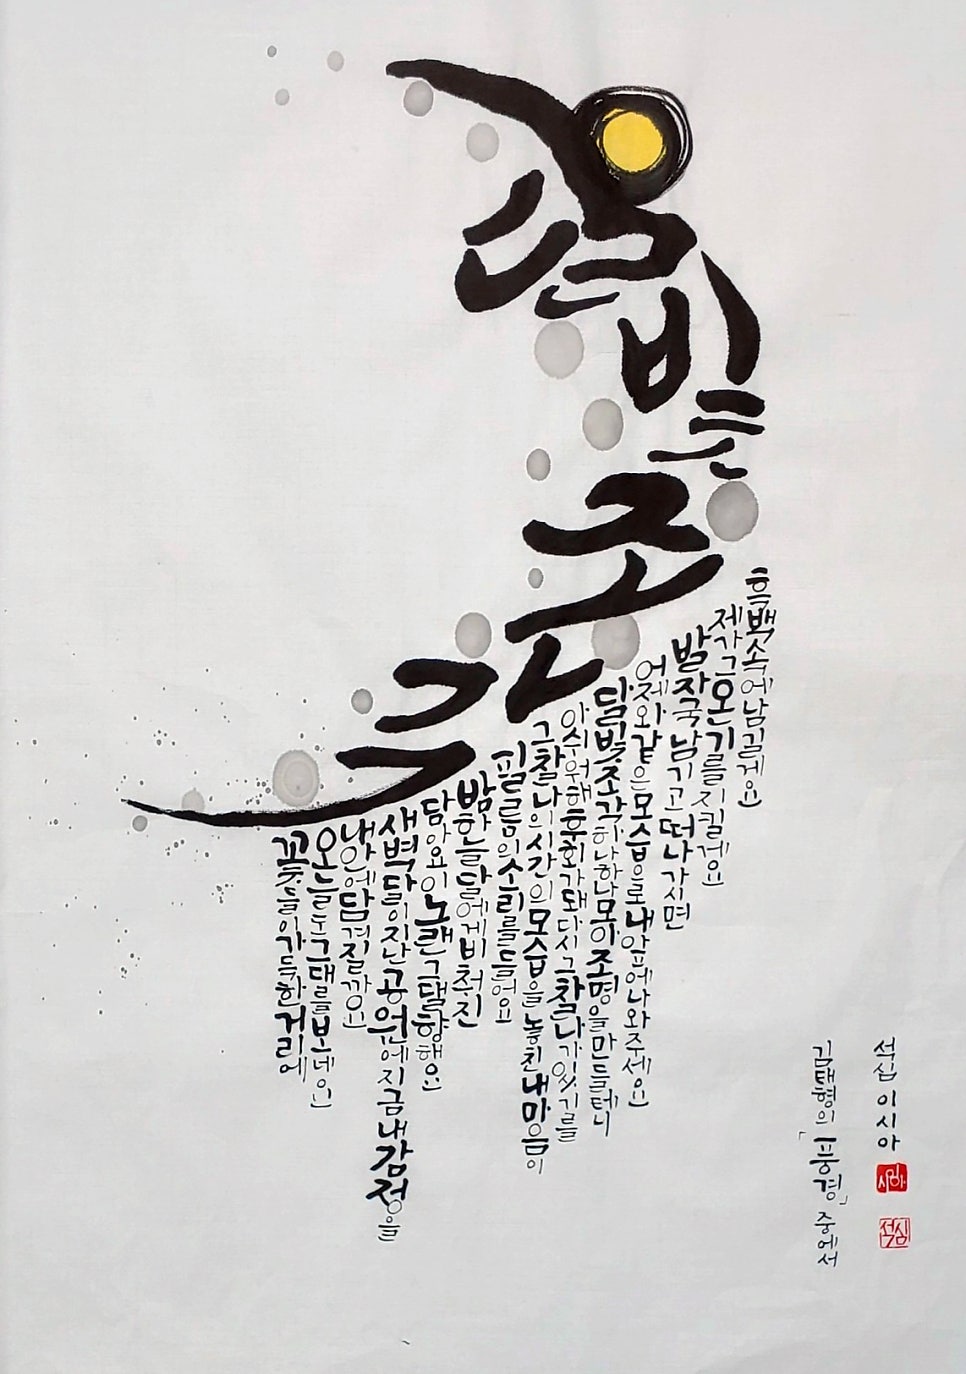 꽃들이 가득한 거리에
오늘도 그대를 보네요
내 안에 담겨질까요
새벽 달이 지난 공원에 지금 내 감정을
담아요 이 노랜 그댈 향해요
밤하늘 달에게 비춰진
필름의 소리를 들어요
그 찰나의 시간의 모습을 놓친 내 마음이
아쉬워해 후회가 돼 다시 그 찰나가 있기를
달빛 조각 하나하나 모아 조명을 만들 테니
어제와 같은 모습으로 내 앞에 나와주세요
발자국 남기고 떠나가시면
제가 그 온기를 지킬게요
흑백 속에 남길게요
김태형의 「풍경」 중에서
석심 이시아
시아
석심